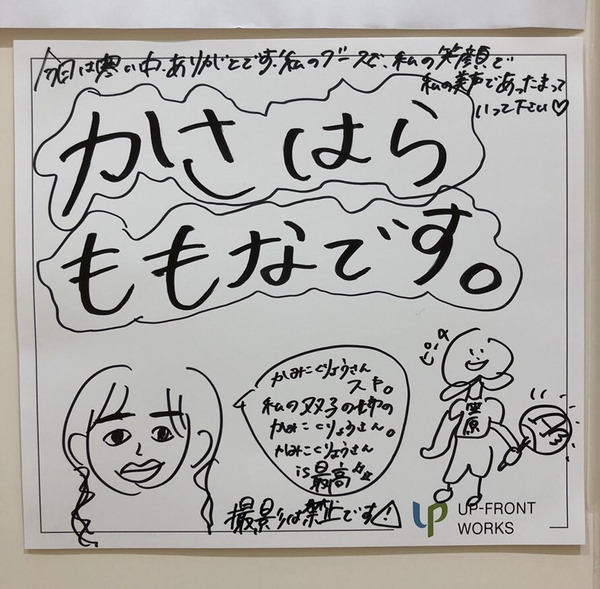 今日は寒い中、ありがとです!私のブースで、私の笑顔で
私の美声であったまって
いって下さい♡
かさはら
ももなです。
かみこくりょうさん
スキ。
私の双子の姉の
かみこくりょうさん。
かみこくりょうさん
is最高
笠原
撮影は禁止です
UP-FRONT
WORKS